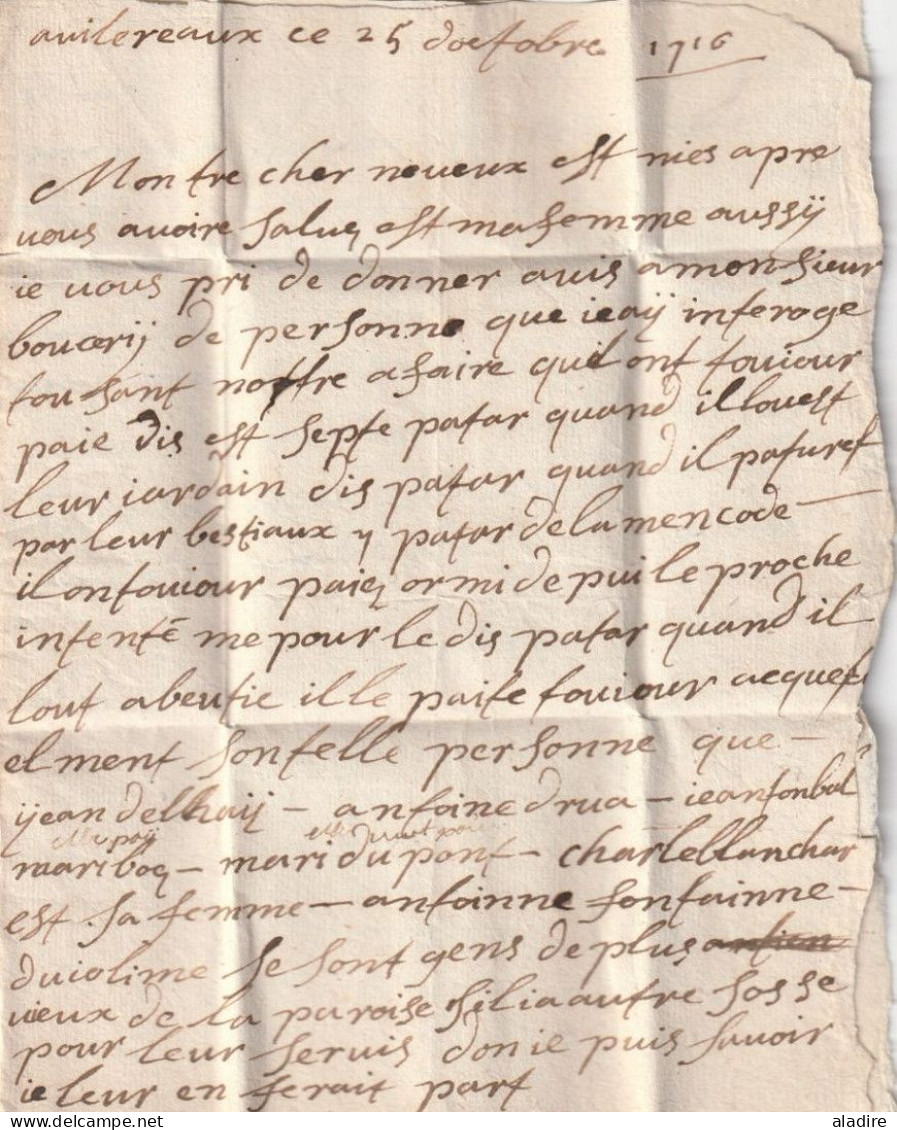 avilereaux ce 25 doctobre 1716
Montre cher neueux est nies apre
vous auoire saluez est ma femme aussÿ
ie vous pri de donner auis a monsieur
boucerij de personne que ieaÿ interoge
tousant nosttre afaire quil ont touiour
paie dis est septe patar quand il louest
leur iardain dis patar quand il paturest
par leur bestiaux y patar de la mencode
il on touiour paiez ormi de puil le proche
intenté me pour le dis patar quand il
lout abeutie il le paite touiour acquest
el ment sontelle personne que —
ÿean delhaÿ — antoine drua — iean tonbal
elle paÿ
mari boq — mari du pont — charle blanchar
est sa femme — antoinne fontainne —
duiolime se sont gens de plus
vieux de la paroise sil ia autre sosse
pour leur seruis don ie puis sauoir
ie leur en ferait part
aladire